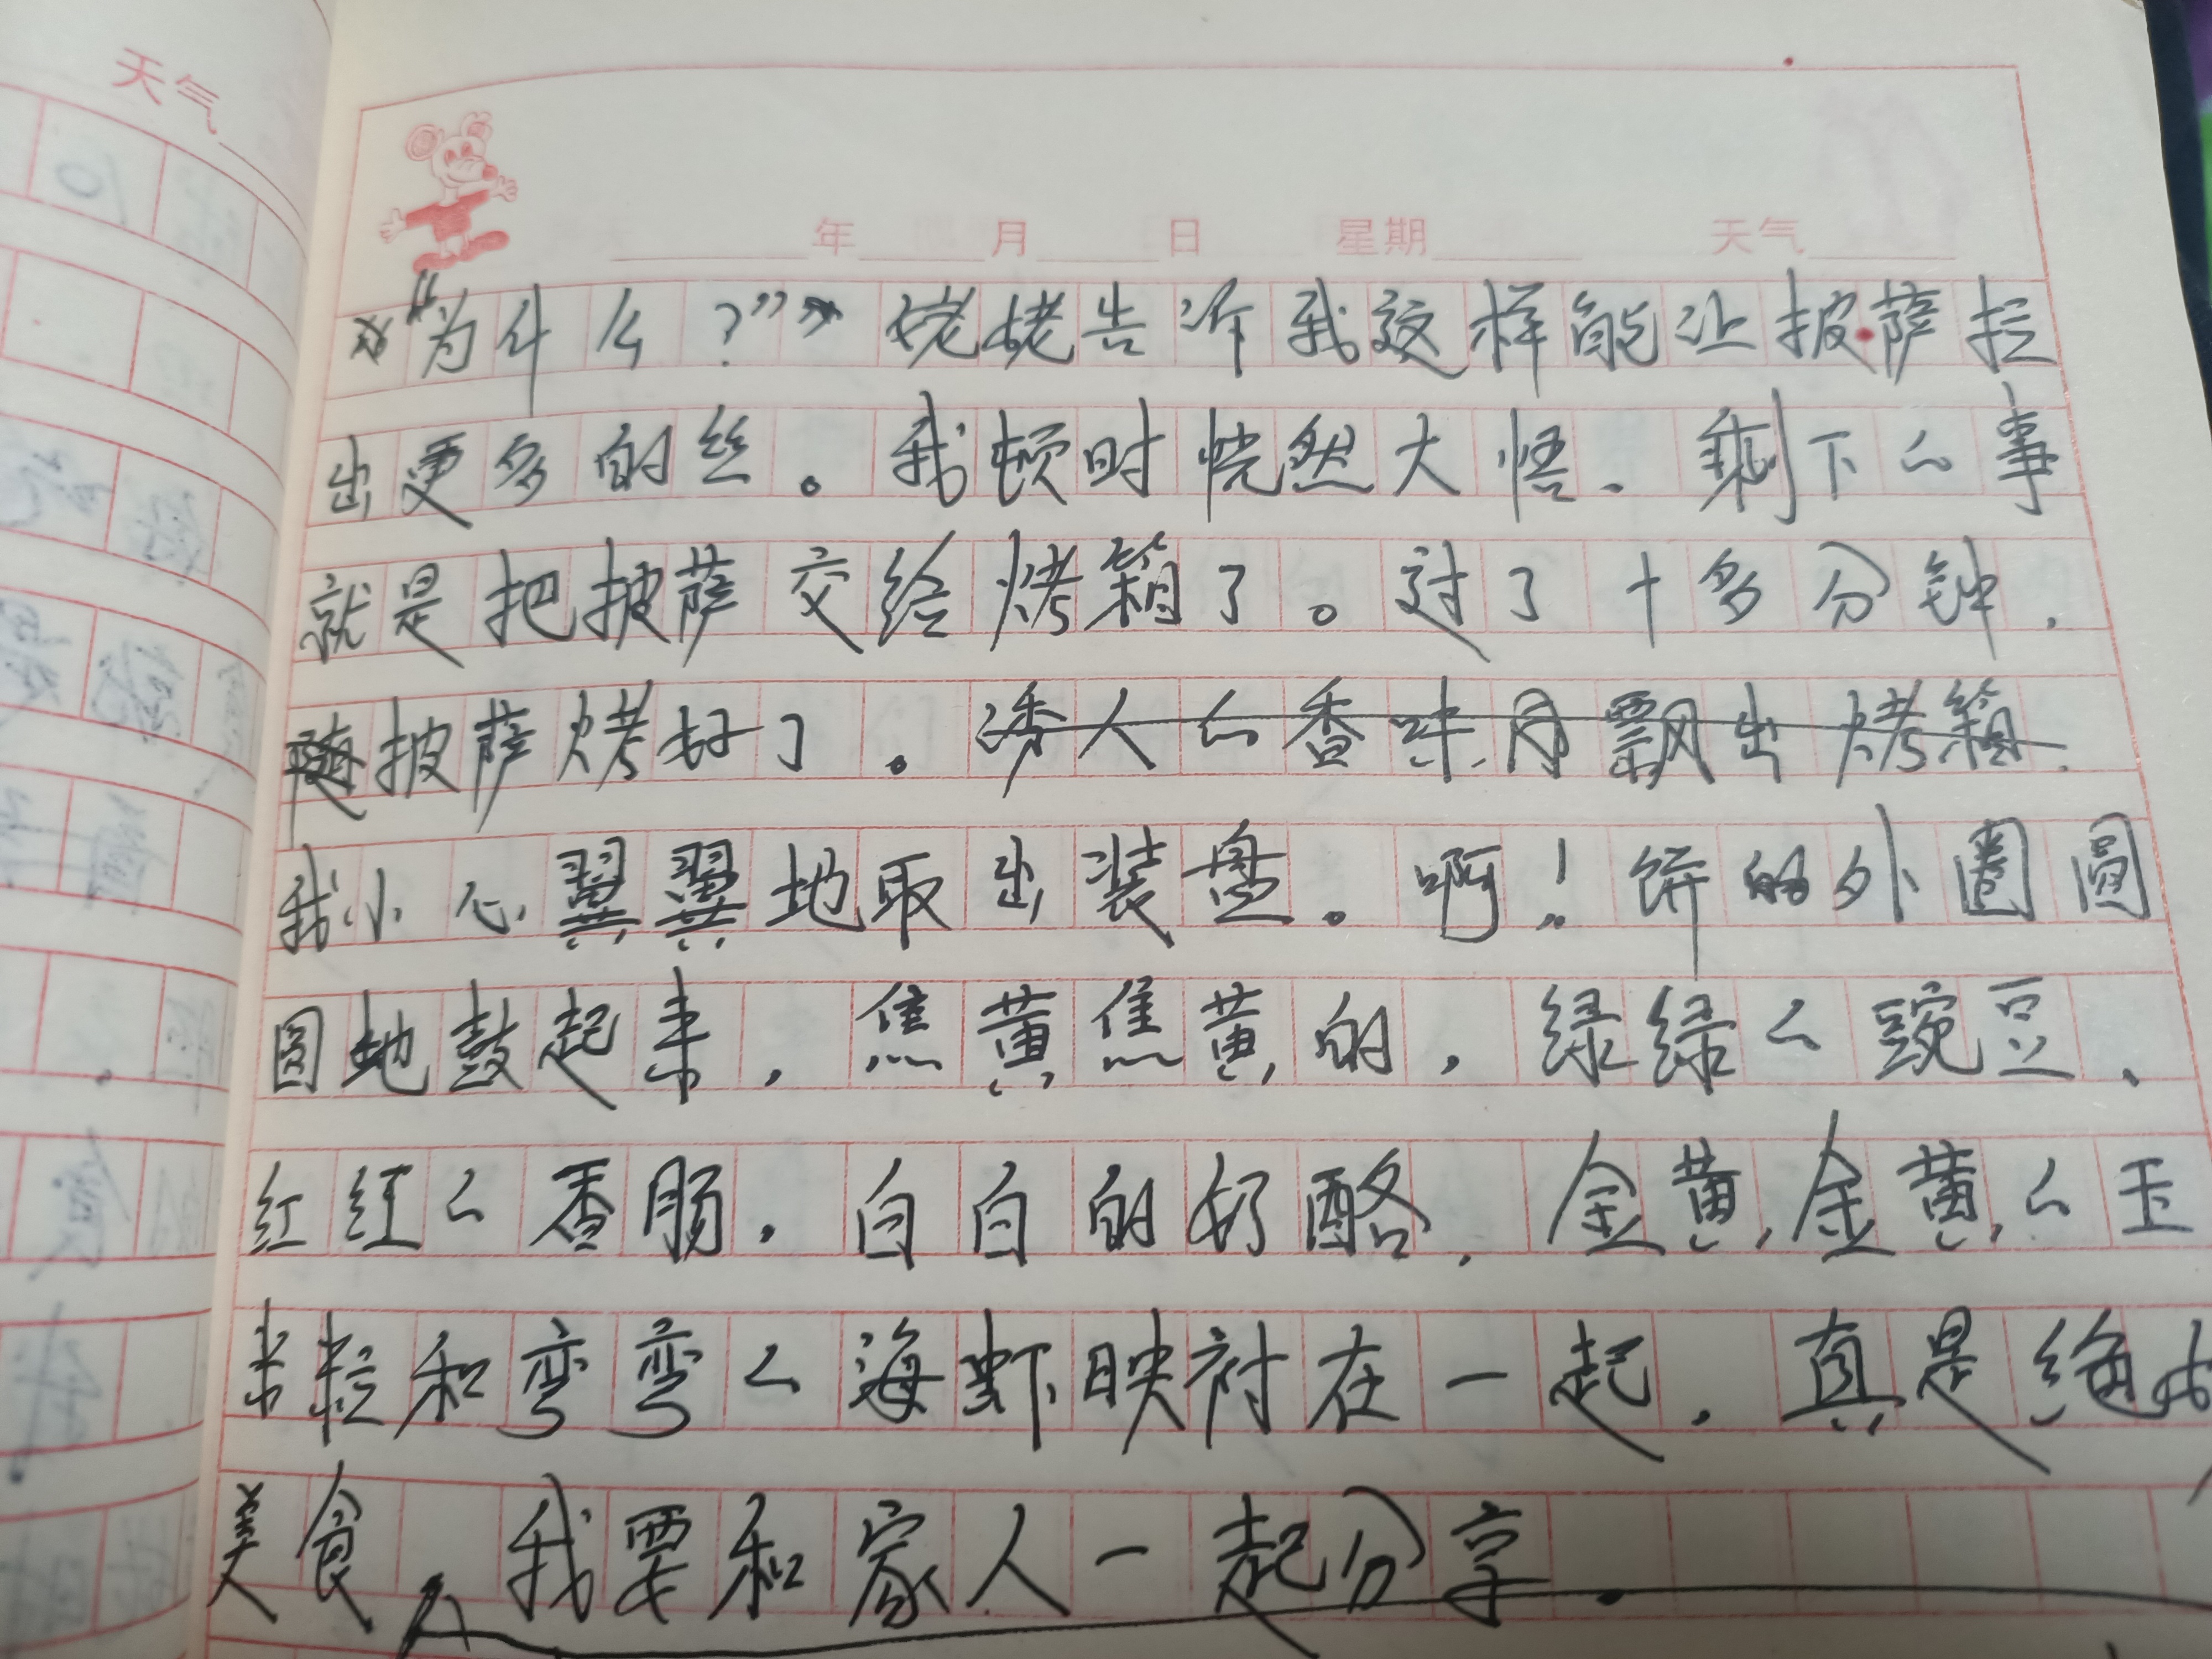 天气
年 月 日 星期 天气
“为什么?”姥姥告诉我这样能让披萨拉
出更多的丝。我顿时恍然大悟.剩下么事
就是把披萨交给烤箱了。过了十多分钟.
披萨烤好了。诱人么香味 飘出烤箱.
我小心翼翼地取出装盘。啊!饼的外圈圆
圆地鼓起来,焦黄焦黄的,绿绿么豌豆、
红红么香肠.白白的奶酪.金黄金黄么玉
米粒和弯弯么海虾映衬在一起.真是绝
美食.我要和家人一起分享.